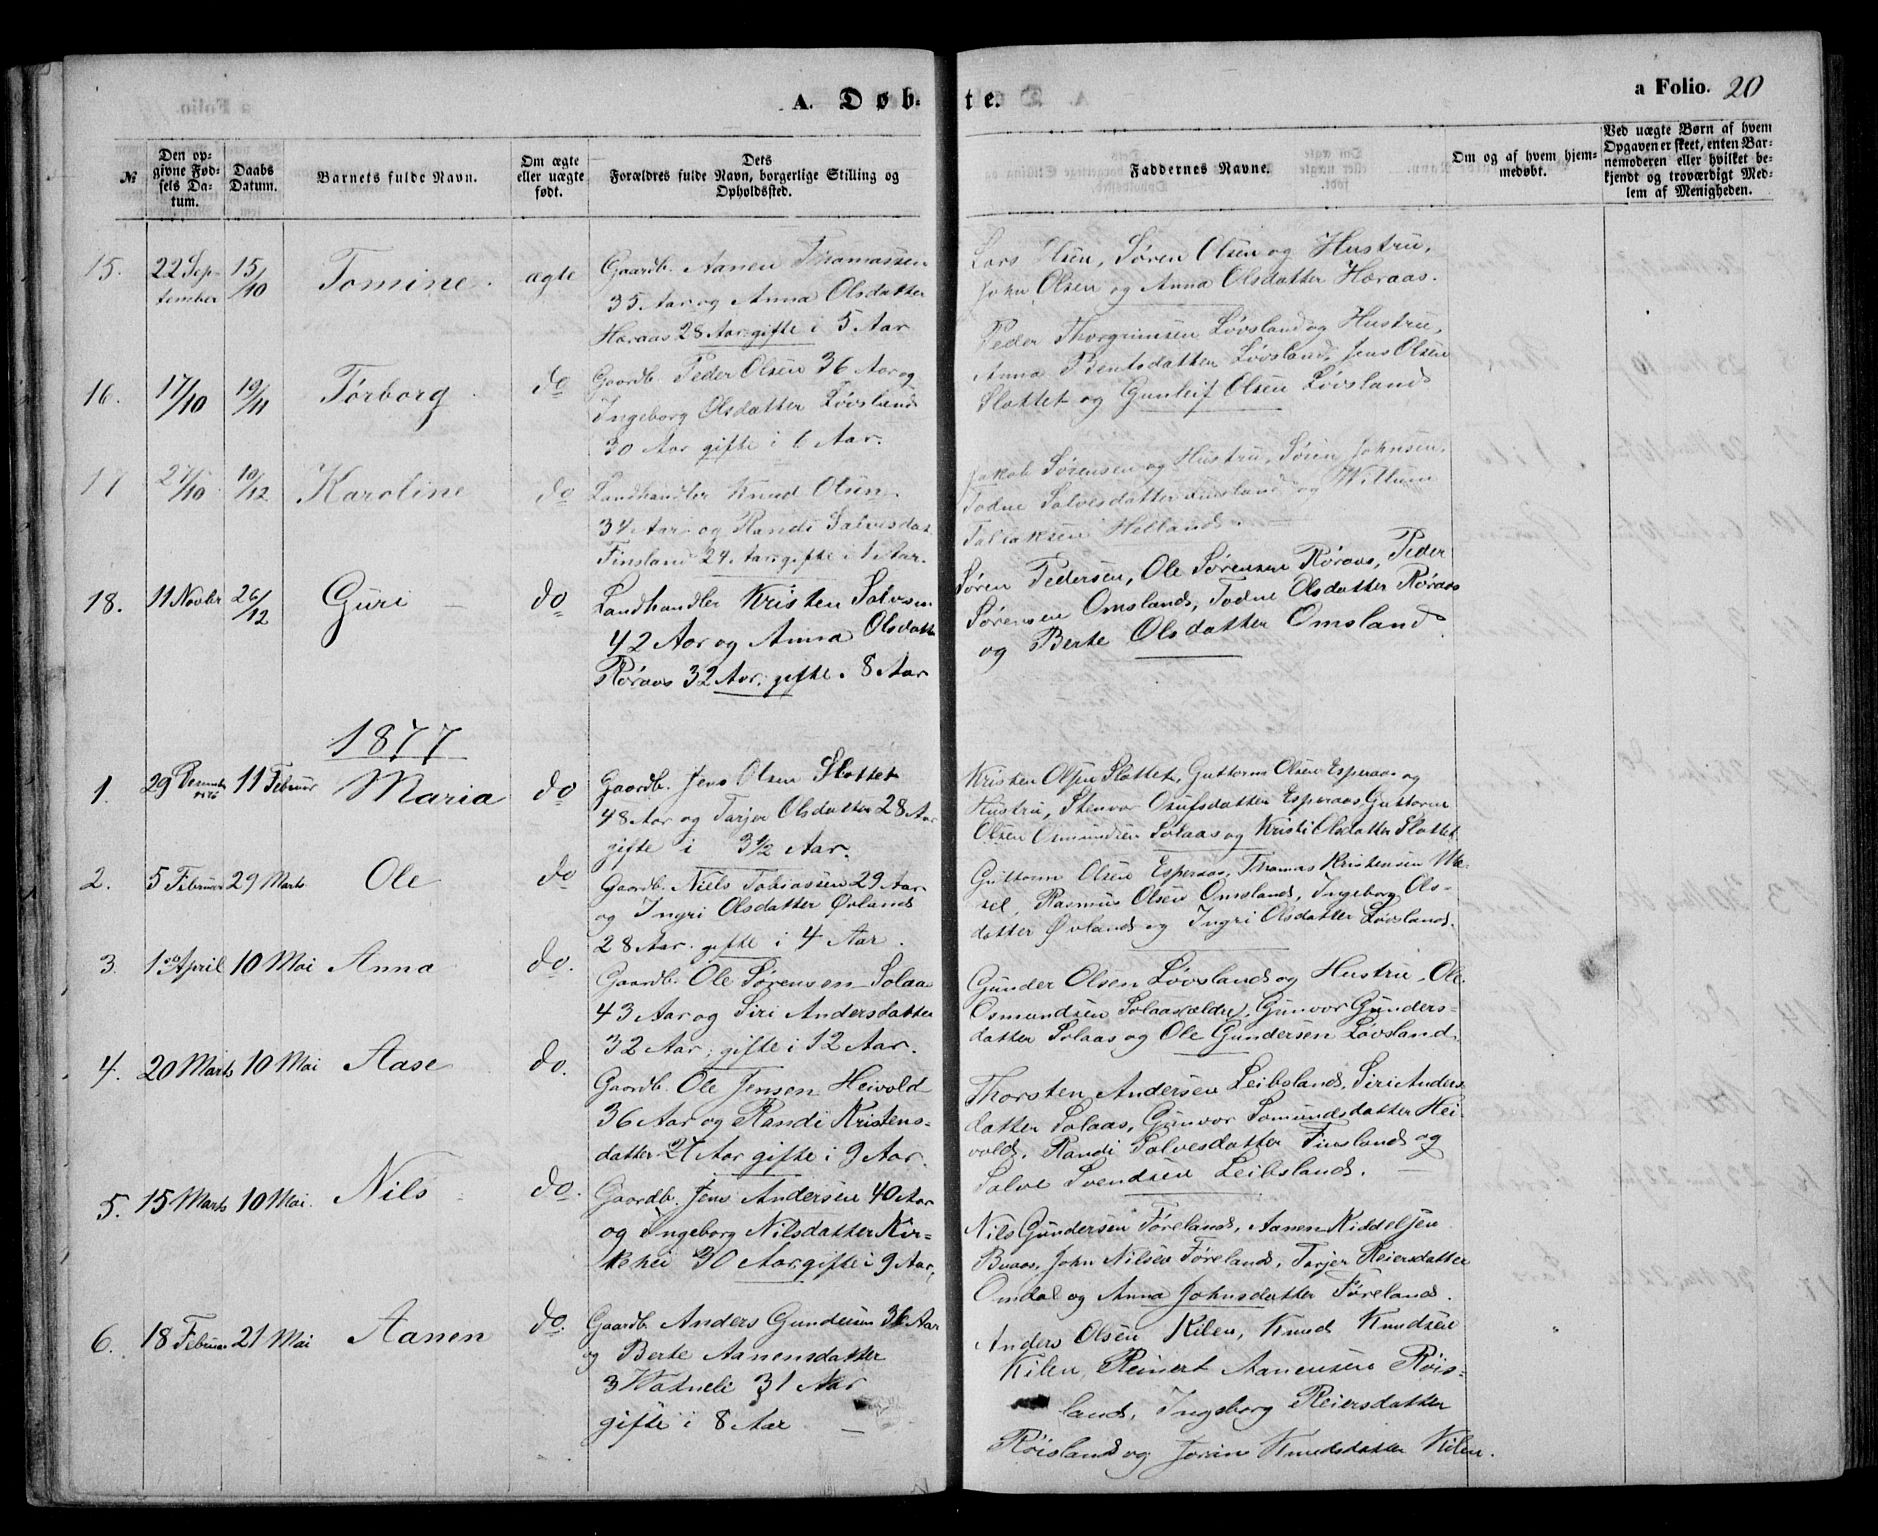 A. Døb-
te.
a Folio. 20
№
Den op-
givne Fød-
sels Da-
tum.
Daabs
Datum.
Barnets fulde Navn.
Om ægte
eller uægte
født.
Dets
Forældres fulde Navn, borgerlige Stilling og
Opholdssted.
Faddernes Navne.
Om og af hvem hjem-
medøbt.
Ved uægte Børn af hvem
Opgaven er skeet, enten Bar-
nemoderen eller hvilket be-
kjendt og troværdigt Med-
lem af Menigheden.
15. 22 Sep-
tember 15/10 Tomine. ægte
Gaardb. Aanen Thomassen
35 Aar og Anna Olsdatter
Haraas 28 Aar gifte i 5 Aar
Lars Olsen, Søren Olsen og Hustru,
John Olsen og Anna Olsdatter Haraas.
16. 17/10 19/11 Tørborg do
Gaardb. Peder Olsen 36 Aar og
Ingeborg Olsdatter Løvsland
30 Aar gifte i 6 Aar.
Peder Thorgrimsen Løvsland og Hustru,
Anna Bentsdatter Løvsland, Jens Olsen
Slottet og Gunleif Olsen Løvsland
17 27/10 10/12 Karoline do
Landhandler Knud Olsen
34 Aar og Randi Salvesdat
Finsland 24 Aar gifte i 1 Aar.
Jakob Sørensen og Hustru, Søren Johnsen,
Todne Salvesdatter Finsland og Willum
Tallaksen Helland.
18. 11 Novbr 26/12 Guri do
Landhandler Kristen Salvesen
42 Aar og Anna Olsdatte
Røraas 32 Aar, gifte. 8 Aar
Søren Pedersen, Ole Sørensen Røraas, Peder
Sørensen Omsland, Todne Olsdatter Røraas
og Berte Olsdatter Omsland
1877
1. 29 Decembr 1876 11 Februar Maria do
Gaardb. Jens Olsen Slottet
48 Aar og Tarjer Olsdatter 28 Aar
gifte i 3½ Aar.
Kristen Olsen Slottet, Guttorm Olsen Esperaas og
Hustru, Stenvor Osufsdatter Esperaas, Guttorm
Olsen Osmundsen Solaas og Kristi Olsdatter Slottet
2. 5 Februar 29 Marts Ole do
Gaardb. Niels Tobiassen 29 Aar
og Ingri Olsdatter Øvland
28 Aar. gifte i 4 Aar.
Guttorm Olsen Esperaas, Thomas Kristensen Mø-
sel, Rasmus Olsen Omsland, Ingeborg Ols-
datter Øvland og Ingri Olsdatter Løvsland.
3. 1 April 10 Mai Anna do.
Gaardb. Ole Sørensen Solaa
43 Aar og Siri Andersdatter
32 Aar, gifte i 12 Aar.
Gunder Olsen Løvsland og Hustru, Ole
Osmundsen Solaas (ældre), Gunvor Gunders-
datter Solaas og Ole Gundersen Løvsland.
4. 20 Marts 10 Mai Aase do.
Gaardb. Ole Jensen Heivold
36 Aar og Randi Kristens-
datter 27 Aar gifte i 9 Aar.
Thorsten Andersen Leibsland, Siri Anders
datter Solaas, Gunvor Somundsdatter Hei-
vold, Randi Salvesdatter Finsland og
Salve Svendsen Leibsland.
5. 15 Marts 10 Mai. Nils do.
Gaardb. Jens Andersen 40 Aar
og Ingeborg Nilsdatter Kir-
kehei 30 Aar, gifte i 9 Aar,
Nils Gundersen Føreland, Aanen Kiddelsen
Buaas, John Nilsen Føreland, Tarjer Reiersdatter
Omdal og Anna Johnsdatter Føreland.
6. 18 Februar 21 Mai Aanen do.
Gaardb. Anders Gundersen 36 Aar
og Berte Aanensdatter
Watneli 31 Aar
gifte i 8 Aar
Anders Olsen Kilen, Knud Knudsen
Kilen, Reinert Aanensen Røis-
land, Ingeborg Reiersdatter
Røisland og Joran Knudsdatter Kilen.